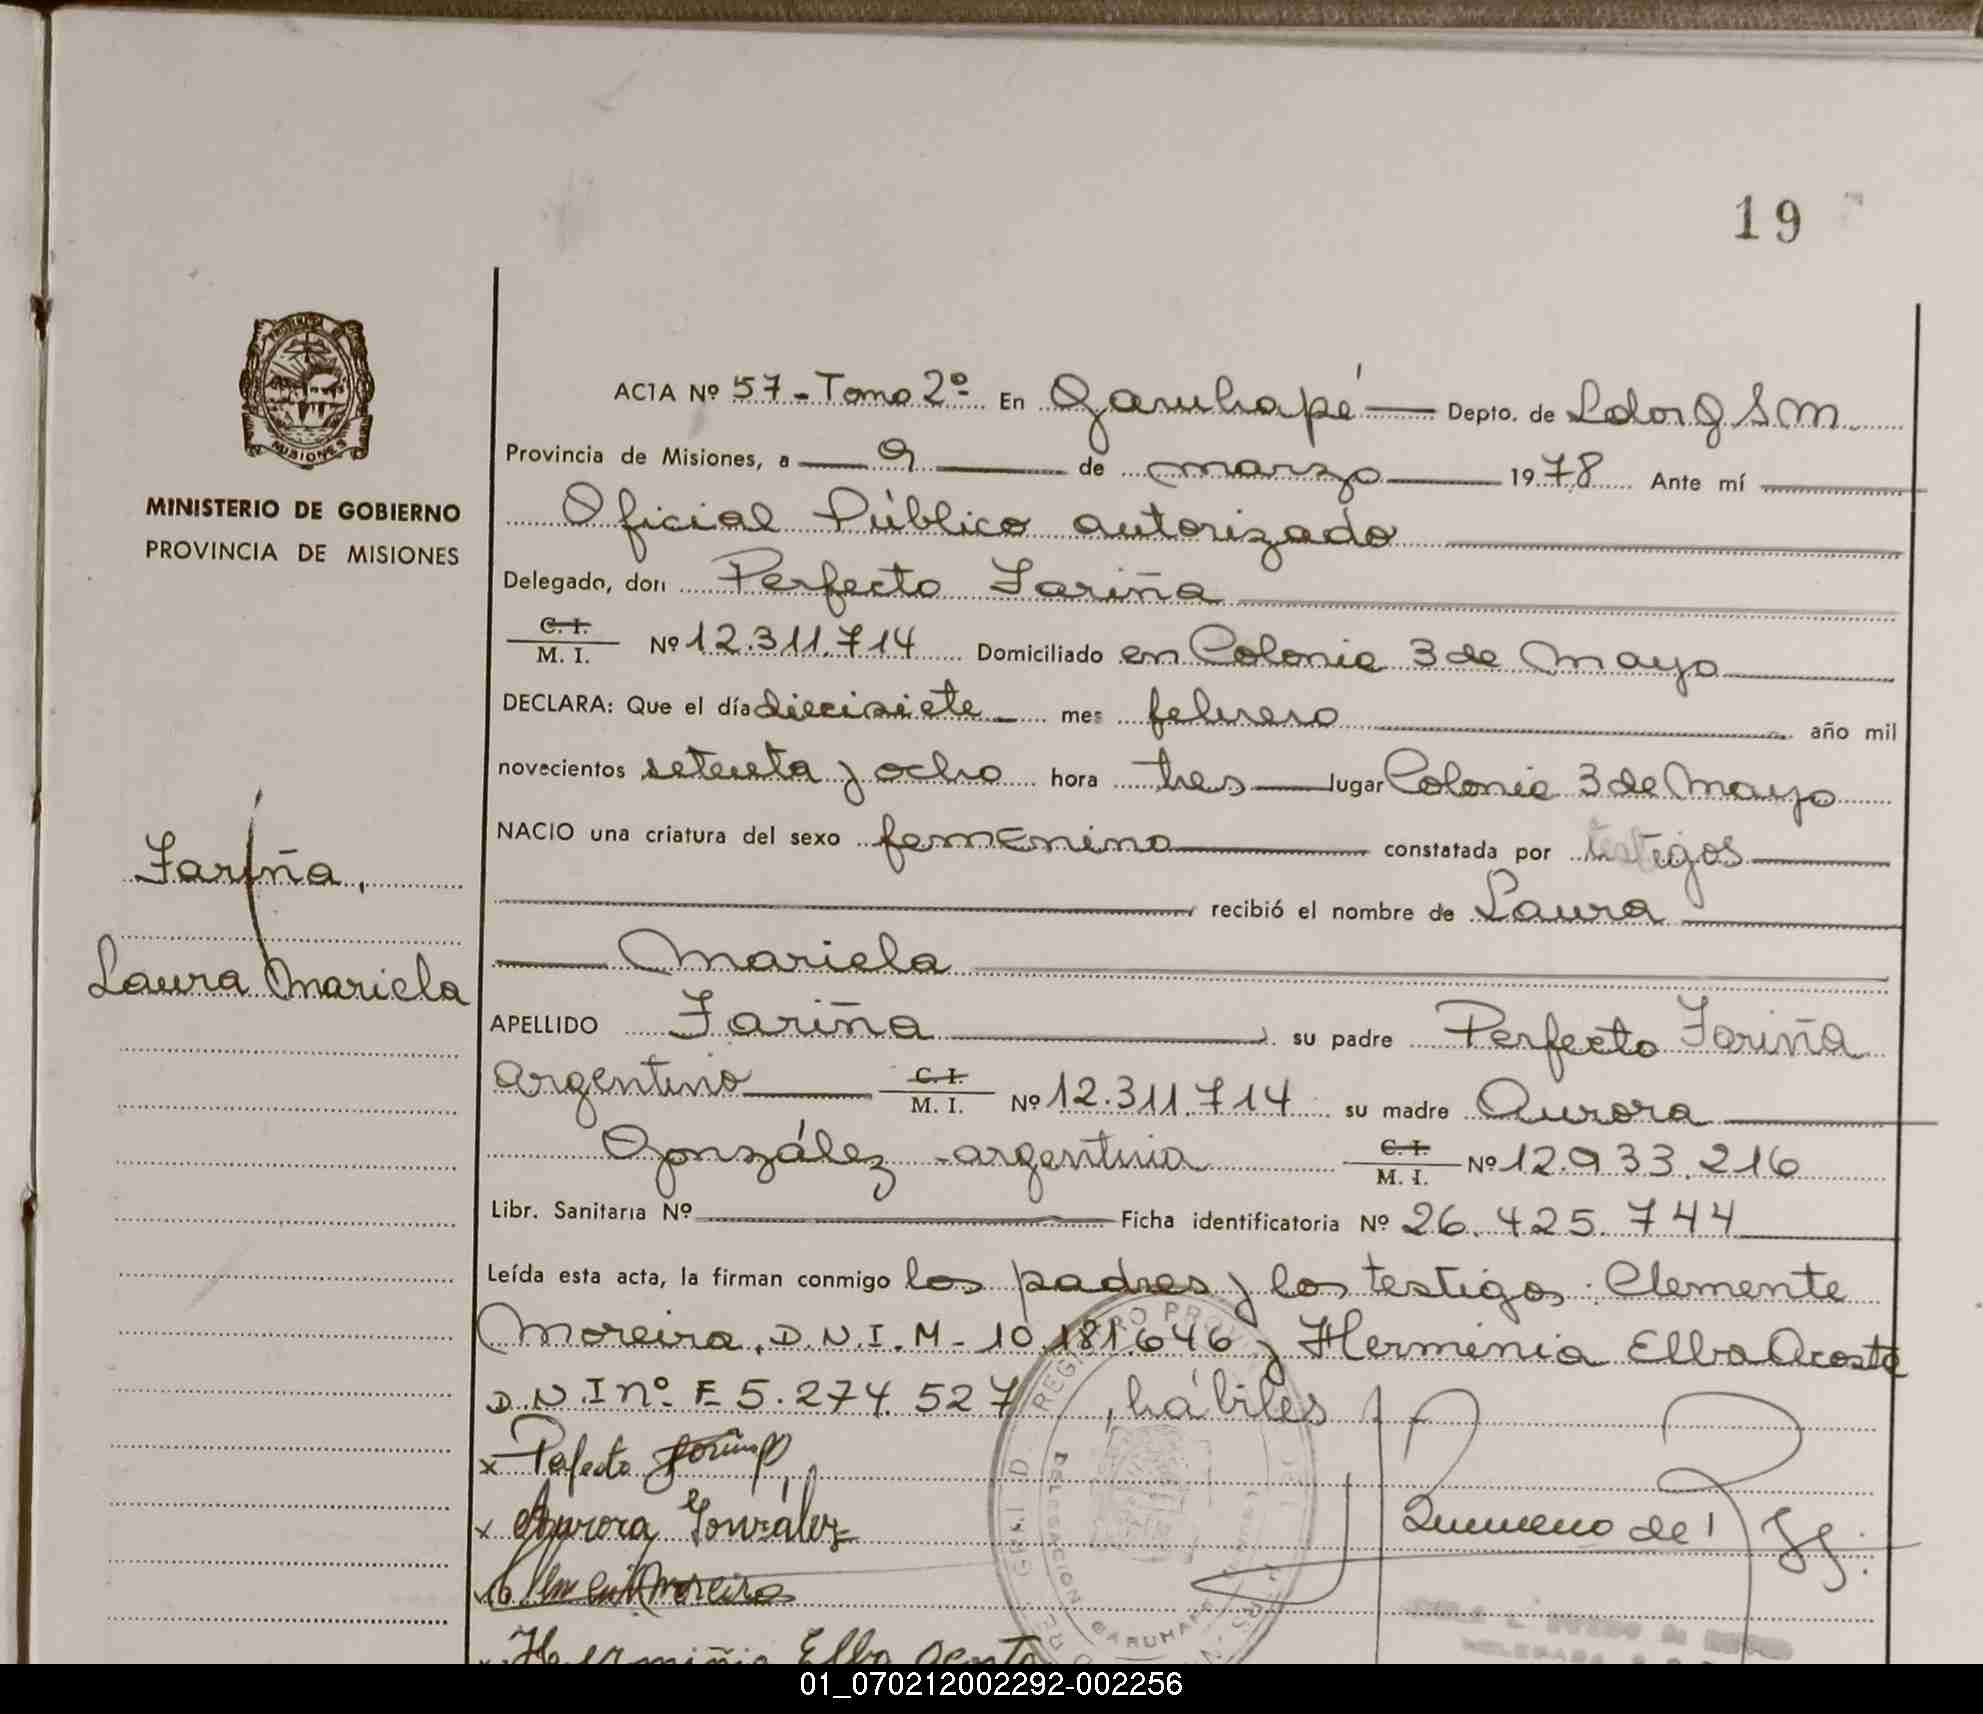 19
ACTA Nº 57 - Tomo 2º En Garuhapé Depto. de Ldor G S M
Provincia de Misiones, a 9 de marzo 1978 Ante mí
Oficial Público autorizado
Delegado, don Perfecto Fariña
C. I. / M. I. Nº 12.311.714 Domiciliado en Colonia 3 de Mayo
DECLARA: Que el día diecisiete mes febrero año mil
novecientos setenta y ocho hora tres lugar Colonia 3 de Mayo
NACIO una criatura del sexo femenino constatada por testigos
recibió el nombre de Laura
Mariela
APELLIDO Fariña su padre Perfecto Fariña
argentino C. I. / M. I. Nº 12.311.714 su madre Aurora
González - argentina C. I. / M. I. Nº 12.933.216
Libr. Sanitaria Nº Ficha identificatoria Nº 26.425.744
Leída esta acta, la firman conmigo los padres y los testigos: Clemente
Moreira, D.N.I. M- 10.181.646 y Herminia Elba Acosta
D.N.I nº F 5.274.527, hábiles
x Pefecto Fariña
x Aurora González
Moreira
Herminia Elba Acosta
MISIONES
MINISTERIO DE GOBIERNO
PROVINCIA DE MISIONES
Fariña,
Laura Mariela
REGISTRO PROVIN
DELEGACION GARUHAPE
01_070212002292-002256